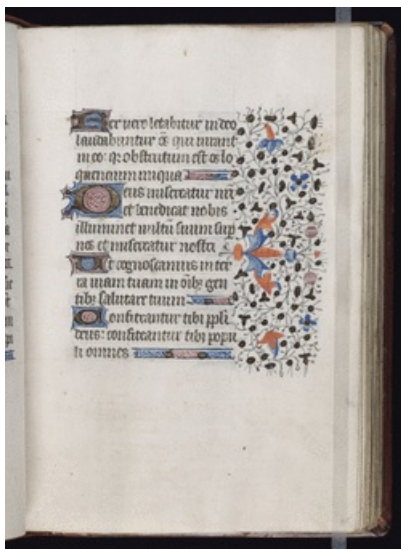 Rex vero letabitur in deo
laudabuntur oēs qui iurant
in eo: qr obstructum est os lo
quencium iniqua
Deus misereatur nrī
et benedicat nobis
illuminet vultū suum sup
nos et misereatur nostri
Ut cognoscamus in ter
ra uiam tuam in oīby gen
tiby salutare tuum
Confiteantur tibi ppli
deus: confiteantur tibi popu
li omnes